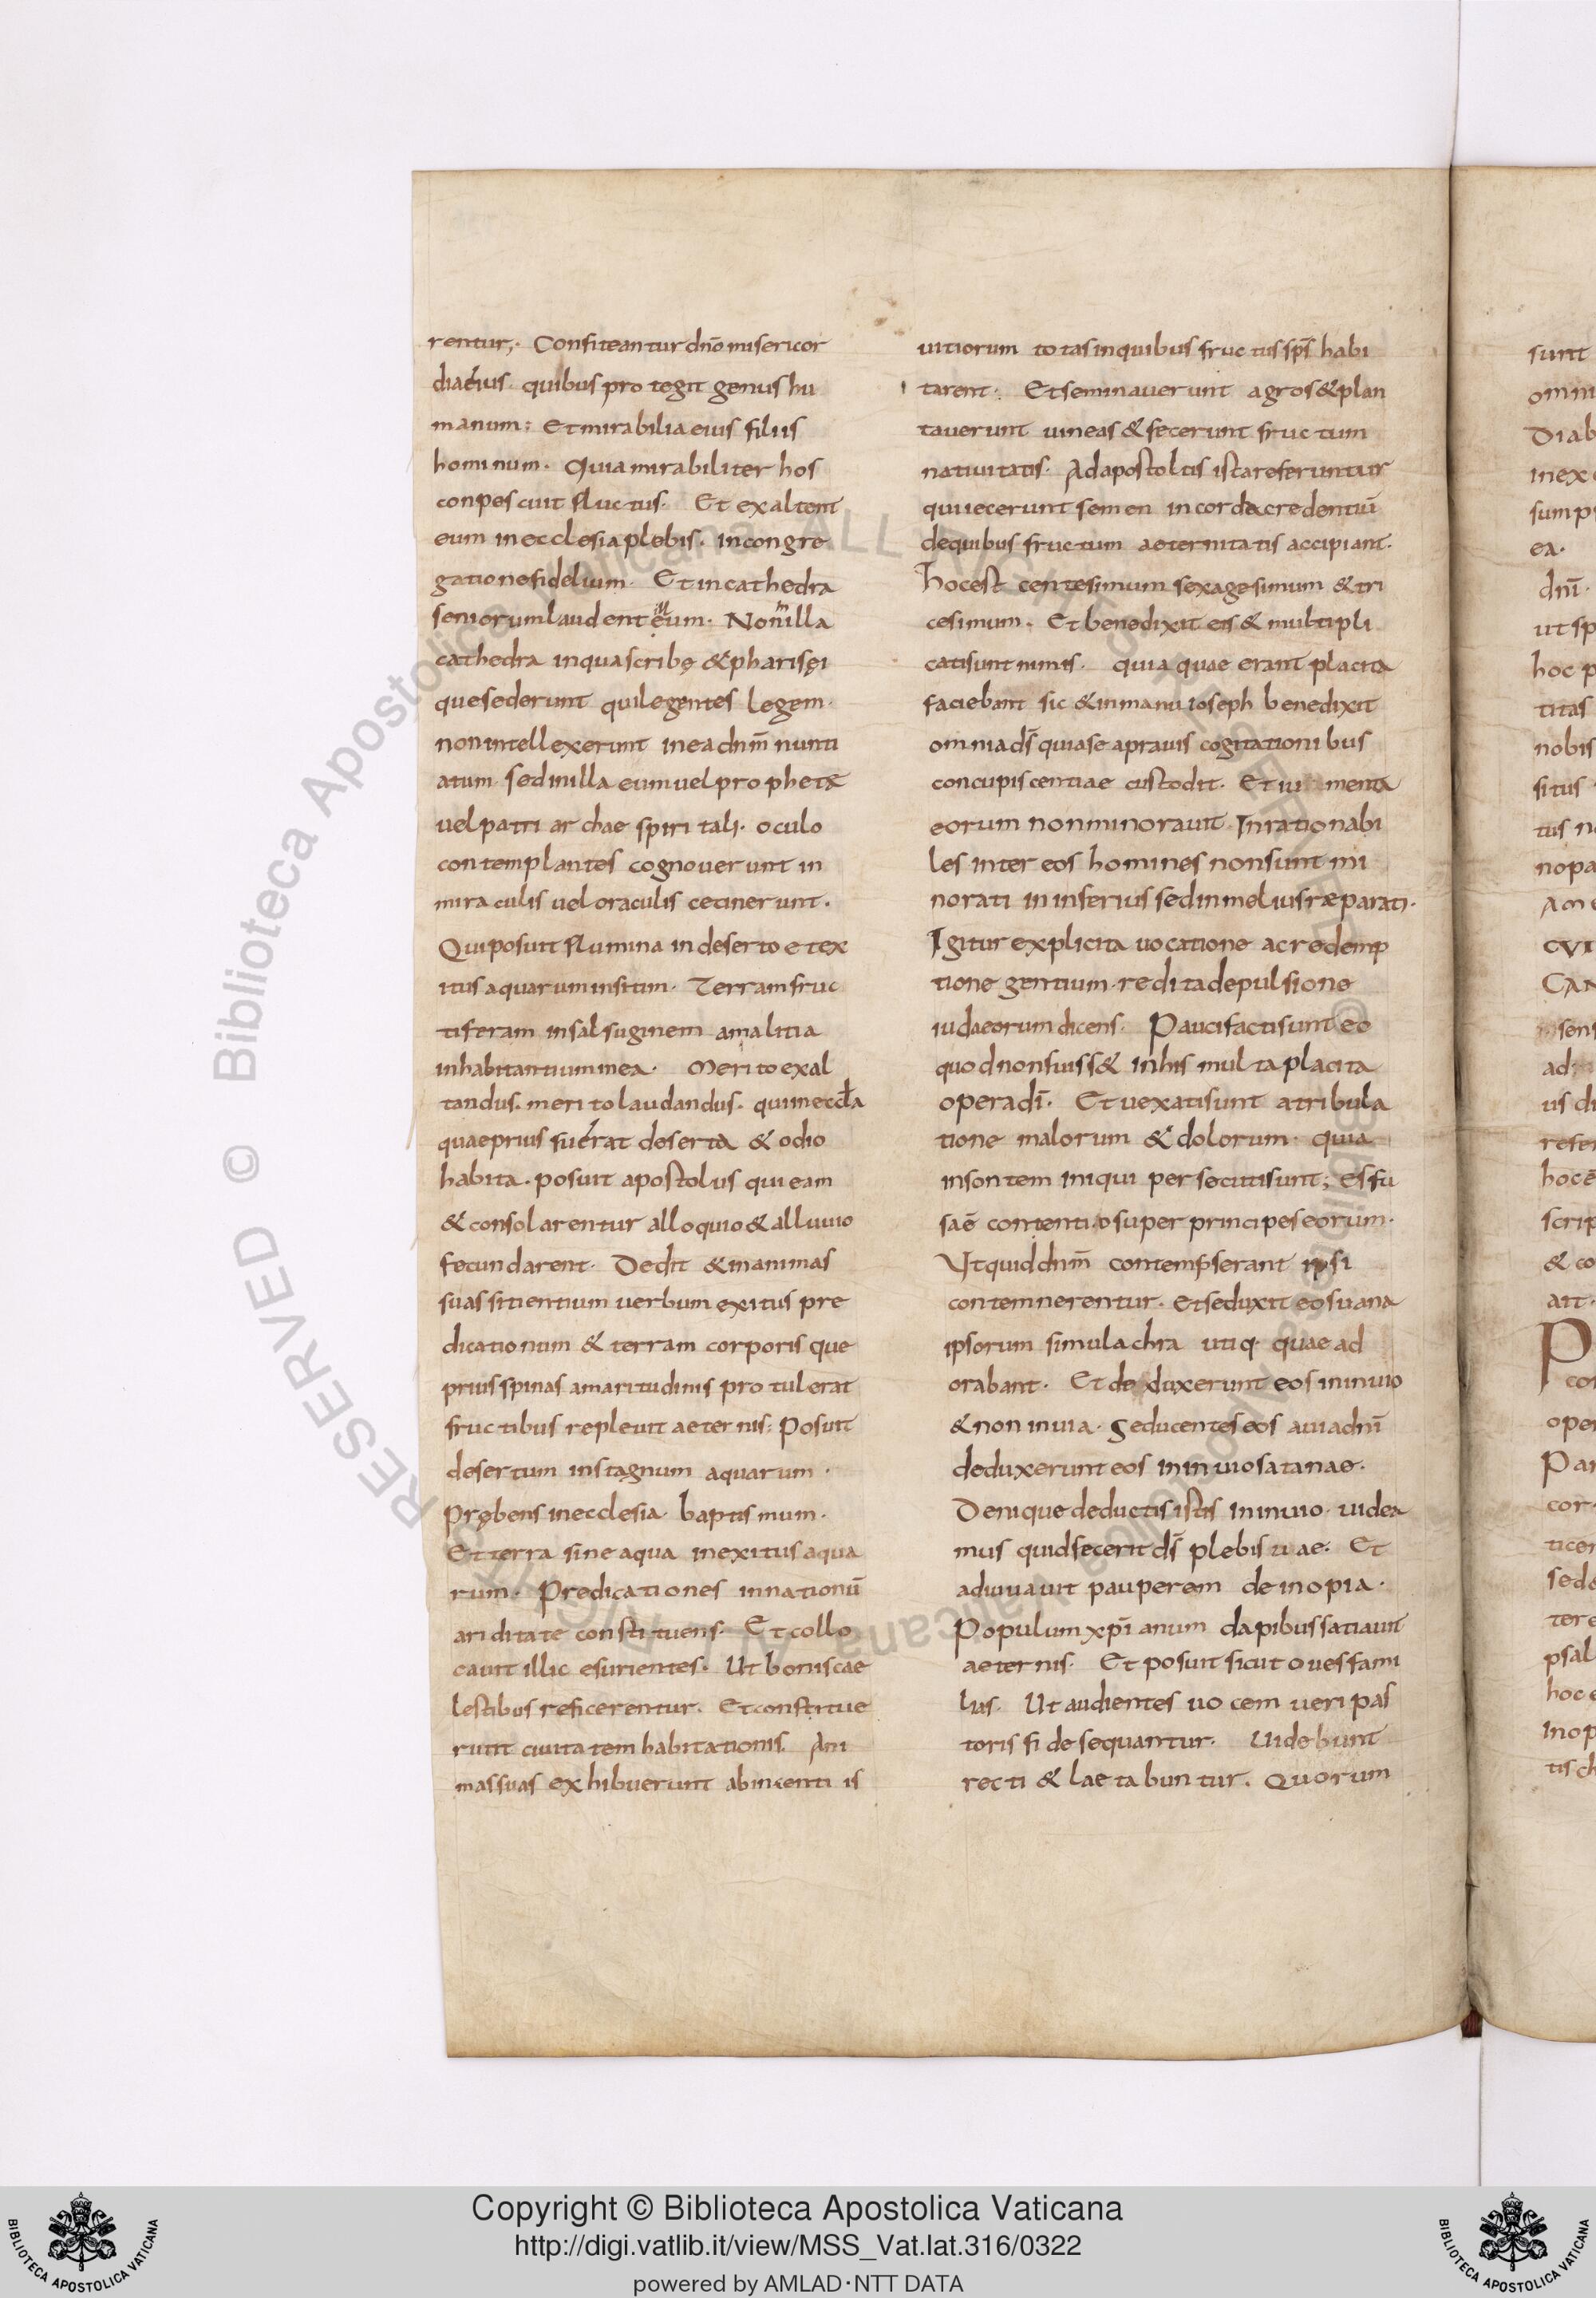 rentur;· Confiteantur dn̄o misericor
diae eius· quibus protegit genus hu
manum: Et mirabilia eius filiis
hominum· Quia mirabiliter hos
conpescuit fluctus· Et exaltent
eum in ecclesia plebis· in congre
gatione fidelium· Et in cathedra
seniorum laudent eum· Non in illa
cathedra in qua scribę & pharisęi
que sederunt qui legentes legem·
non intellexerunt in ea dnm̄ nunti
atum· sed in illa eum uel prophetæ
uel patriarchae spiritali· oculo
contemplantes cognouerunt in
miraculis uel oraculis cetinerunt·
Qui posuit flumina in deserto et ex
itus aquarum in sitim· Terram fruc
tiferam in salsuginem a malitia
inhabitantium in ea· Merito exal
tandus· merito laudandus· qui in eccƚa
quae prius fuerat deserta & odio
habita· posuit apostolus qui eam
& consolarentur alloquio & alluuio
fecundarent· Dedit & in animas
suas sitientium uerbum exitus pre
dicationum & terram corporis que
prius spinas amaritudinis protulerat
fructibus repleuit aeternis: Posuit
desertum in stagnum aquarum·
Prębens in ecclesia· baptismum·
Et terra sine aqua in exitus aqua
rum· Predicationes in nationū
ariditate constituens· Et collo
cauit illic esurientes· Ut bonis cae
lestibus reficerentur· Et constitue
runt ciuitatem habitationis· Ani
mas suas exhibuerunt ab incenti is
uitiorum totas in quibus fructus sp̄s habi
tarent· Et seminauerunt agros & plan
tauerunt uineas & fecerunt fructum
natiuitatis· Ad apostolus ista referuntur
qui iecerunt semen in corda credentiū
de quibus fructum aeternitatis accipiant·
hoc est centesimum sexagesimum & tri
cesimum· Et benedixit eis & multipli
cati sunt nimis· quia quae erant placita
faciebant sic & in manu ioseph benedixit
omnia ds̄ quia se a prauis cogitationibus
concupiscentiae custodit· Et iu menta
eorum non minorauit· Inrationabi
les inter eos homines non sunt mi
norati in inferius sed in melius ræparati·
Igitur explicita uocatione ac redemp
tione gentium· redit a depulsione
iudaeorum dicens· Pauci facti sunt eo
quod non fuiss& in his multa placita
opera dī· Et uexati sunt a tribula
tione malorum & dolorum· quia
insontem iniqui persecuti sunt; Esfu
sa ē contentio super principes eorum·
Ut quid dnm̄ contempserant ipsi
contemnerentur· Et seduxit eos uana
ipsorum simulachra utiq· quae ad
orabant· Et deduxerunt eos in inuio
& non in uia· Seducentes eos a uia dnī
deduxerunt eos in inuio satanae·
Denique deductis istis in inuio· uidea
mus quid fecerit ds̄ plebis uae· Et
adiuuauit pauperem de inopia·
Populum xp̄ianum dapibus satiauit
aeternis· Et posuit sicut oues fami
lias· Ut audientes uocem ueri pas
toris fide sequantur· Uidebunt
recti & laetabuntur· Quorum
sunt
omni
Diab
sump
ea·
dnī·
ut sp
hoc p
titas
nobis
situs
tus n
nopa
CAN
sens
ad
us di
refer
scrip
& co
ait·
P
con
oper
Par
cor·
ticen
sed
tere
psal
hoc e
inop
tis ch
© Biblioteca Apostolica Vaticana ALL RIGHTS RESERVED
Copyright © Biblioteca Apostolica Vaticana
http://digi.vatlib.it/view/MSS_Vat.lat.316/0322
powered by AMLAD·NTT DATA
BIBLIOTECA APOSTOLICA VATICANA
BIBLIOTECA APOSTOLICA VATICANA